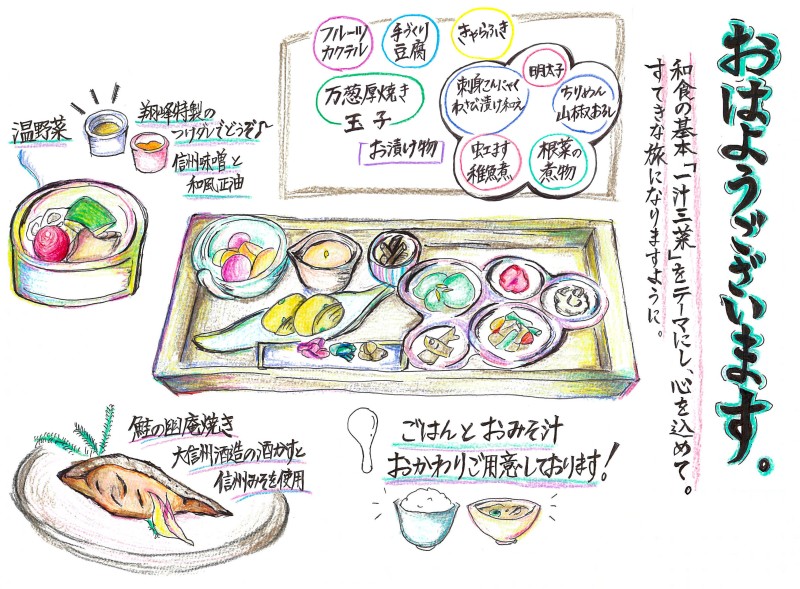 おはようございます。
和食の基本「一汁三菜」をテーマにし、心を込めて。
すてきな旅になりますように。
フルーツ
カクテル
手づくり
豆腐
きゃらぶき
万葱厚焼き
玉子
お漬け物
明太子
刺身こんにゃく
わさび漬け和え
ちりめん
山椒おろし
虹ます
稚魚煮
根菜の
煮物
温野菜
翔峰特製の
つけダレでどうぞ♪
信州味噌と
和風正油
鮭の幽庵焼き
大信州酒造の酒かすと
信州みそを使用
ごはんとおみそ汁
おかわりご用意しております!